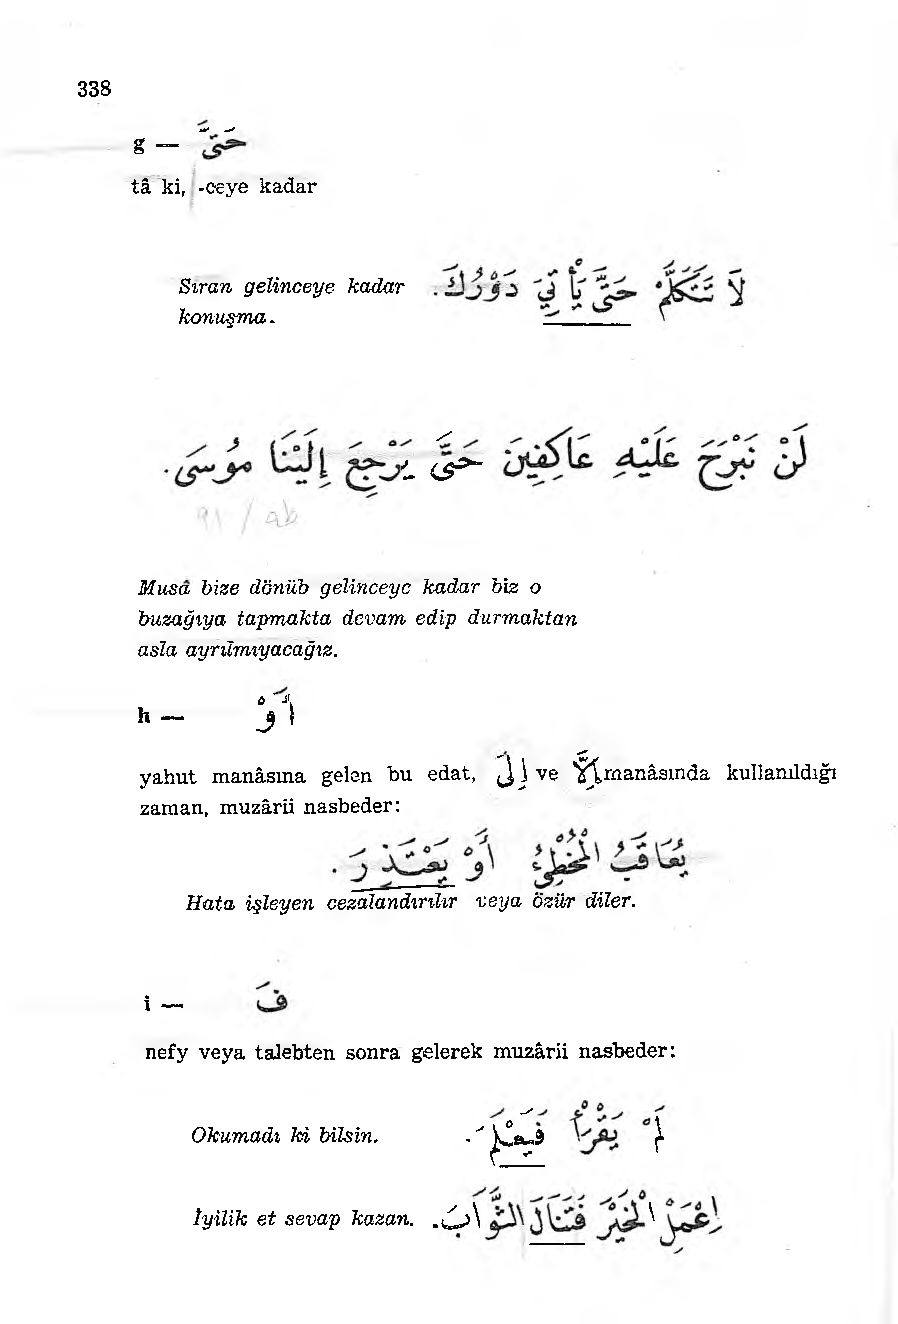 338
g — حَتَّى
tâ ki, -ceye kadar
Sıran gelinceye kadar لاَ تَتَكَلَّمْ حَتَّى يَأْتِيَ دَوْرُكَ.
konuşma.
لَنْ نَبْرَحَ عَلَيْهِ عَاكِفِينَ حَتَّى يَرْجِعَ إِلَيْنَا مُوسَى.
91 / طه
Musâ bize dönüb gelinceye kadar biz o
buzağıya tapmakta devam edip durmaktan
asla ayrılmıyacağız.
h — أَوْ
yahut manâsına gelen bu edat, إِلَى ve إِلاَّ manâsında kullanıldığı
zaman, muzârii nasbeder:
يُعَاقَبُ الْمُخْطِئُ أَوْ يَعْتَذِرَ.
Hata işleyen cezalandırılır veya özür diler.
i — فَ
nefy veya talebten sonra gelerek muzârii nasbeder:
Okumadı ki bilsin. لَمْ يَقْرَأْ فَيَعْلَمَ.
İyilik et sevap kazan. اِعْمَلِ الْخَيْرَ فَتَنَالَ الثَّوَابَ.